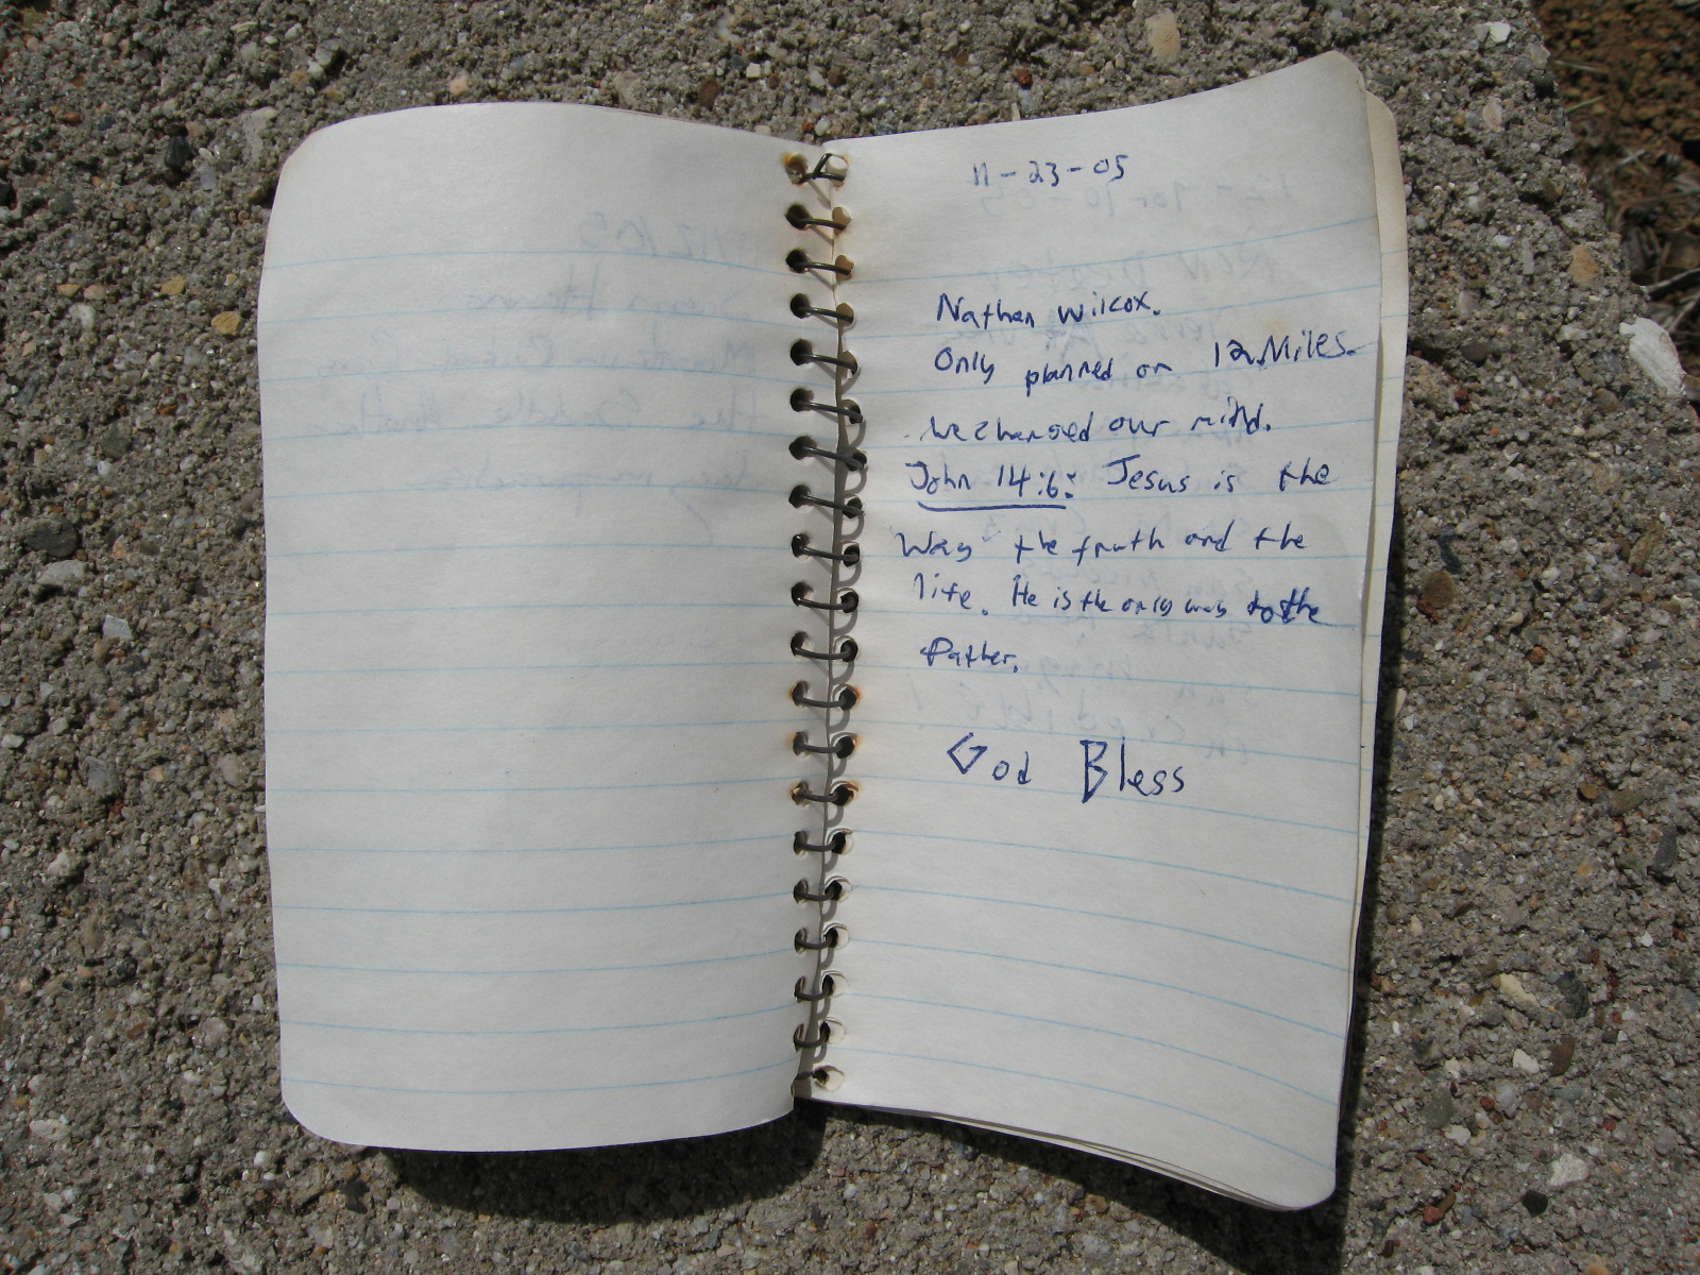 11-23-05
Nathan Wilcox.
Only planned on 12 Miles.
We changed our mind.
John 14:6: Jesus is the
Way the truth and the
life. He is the only way to the
Father.
God Bless